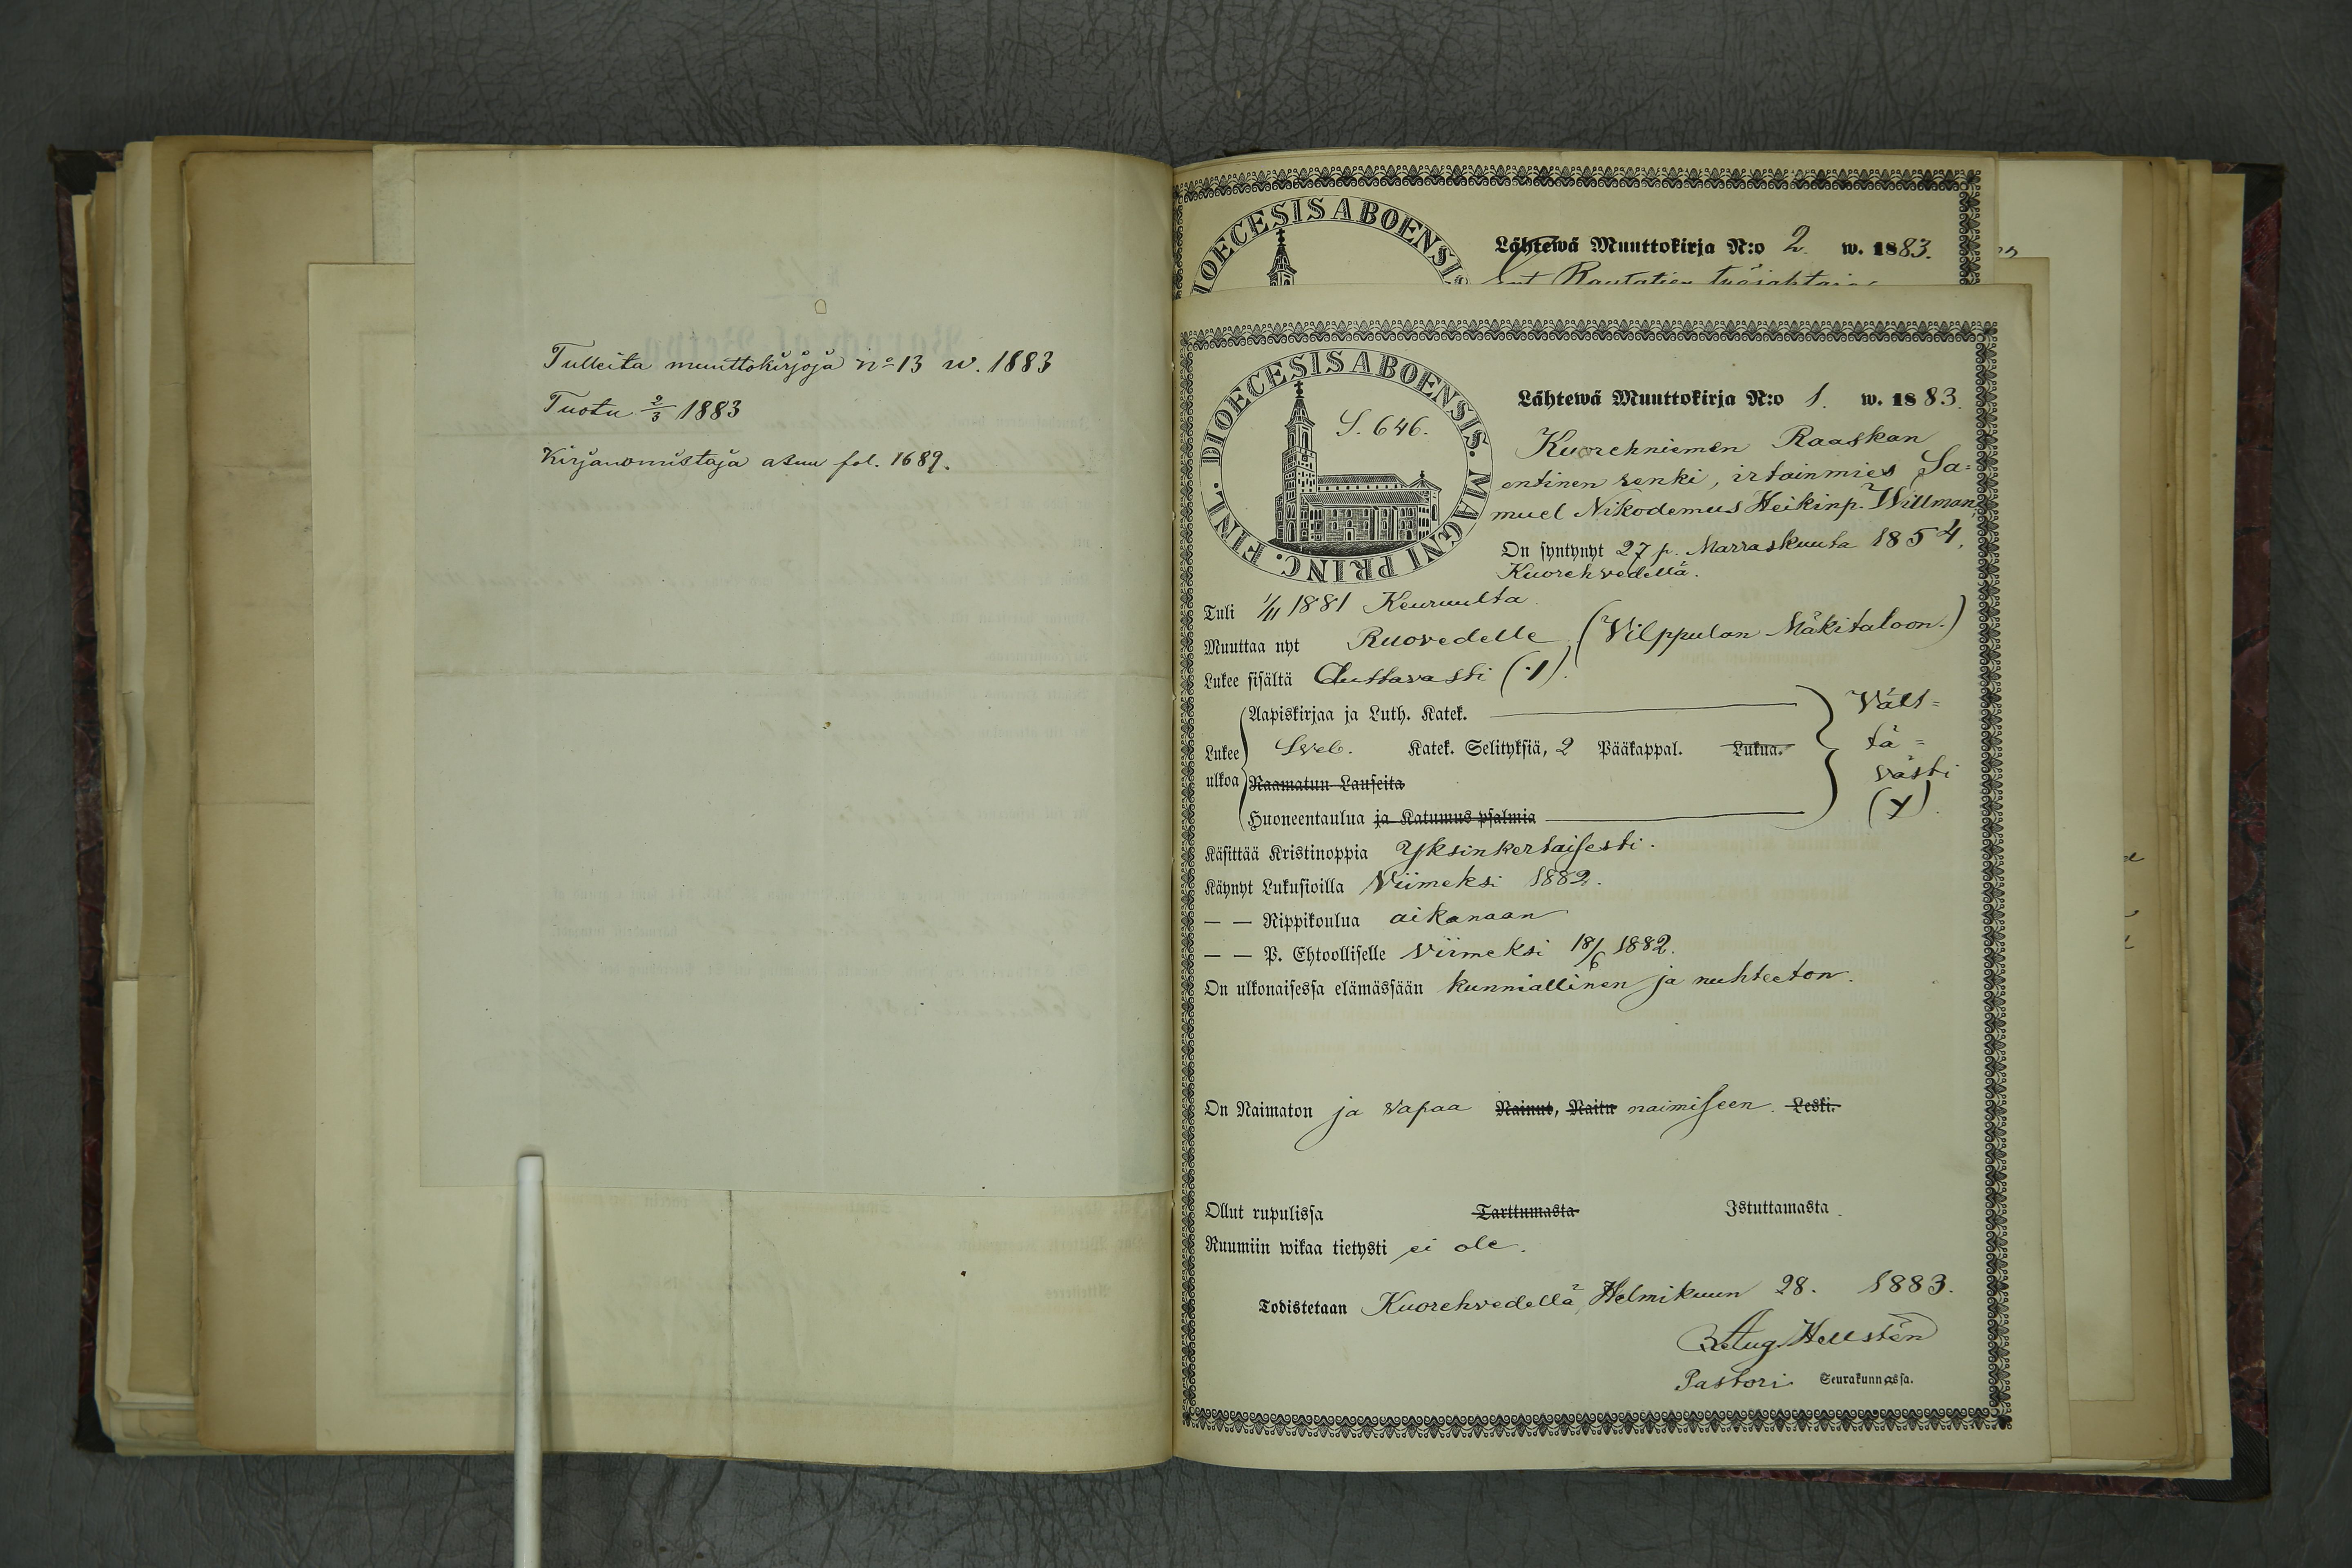 Tulleita muuttokirjoja no 13 w. 1883
Tuotu 2/3 1883
Kirjanomistaja asuu fol. 1689.
DIOECESIS ABOENSIS
Lähtewä Muuttokirja N:o 2. w. 1883.
Rautatien
DIOECESIS ABOENSIS. MAGNI PRINC. FINL.
S. 646.
Lähtewä Muuttokirja N:o 1. w. 1883.
Kuorehniemen Raaskan
entinen renki, irtainmies Sa=
muel Nikodemus Heikinp. Willman,
On syntynyt 27 p. Marraskuuta 1854,
Kuorehvedellä.
Tuli 1/11 1881 Keuruulta
Muuttaa nyt Ruovedelle, (Vilppulan Mäkitaloon.)
Lukee sisältä Auttavasti
Aapiskirjaa ja Luth. Katek.
Lukee ulkoa Sveb. Katek. Selityksiä, 2 Pääkappal. Lukua.
Raamatun Lauseita
Huoneentaulua ja Katumus psalmia
Vält=
tä=
västi
Käsittää Kristinoppia Yksinkertaisesti.
Käynyt Lukusioilla Viimeksi 1882.
— — Rippikoulua aikanaan
— — P. Ehtoolliselle viimeksi 18/6 1882.
On ulkonaisessa elämässään kunniallinen ja nuhteeton.
On Naimaton ja vapaa Nainut, Naitu naimiseen. Leski.
Ollut rupulissa Tarttumasta Istuttamasta.
Ruumiin wikaa tietysti ei ole.
Todistetaan Kuorehvedellä, Helmikuun 28. 1883.
Aug. Hellstén
Pastori Seurakunnassa.